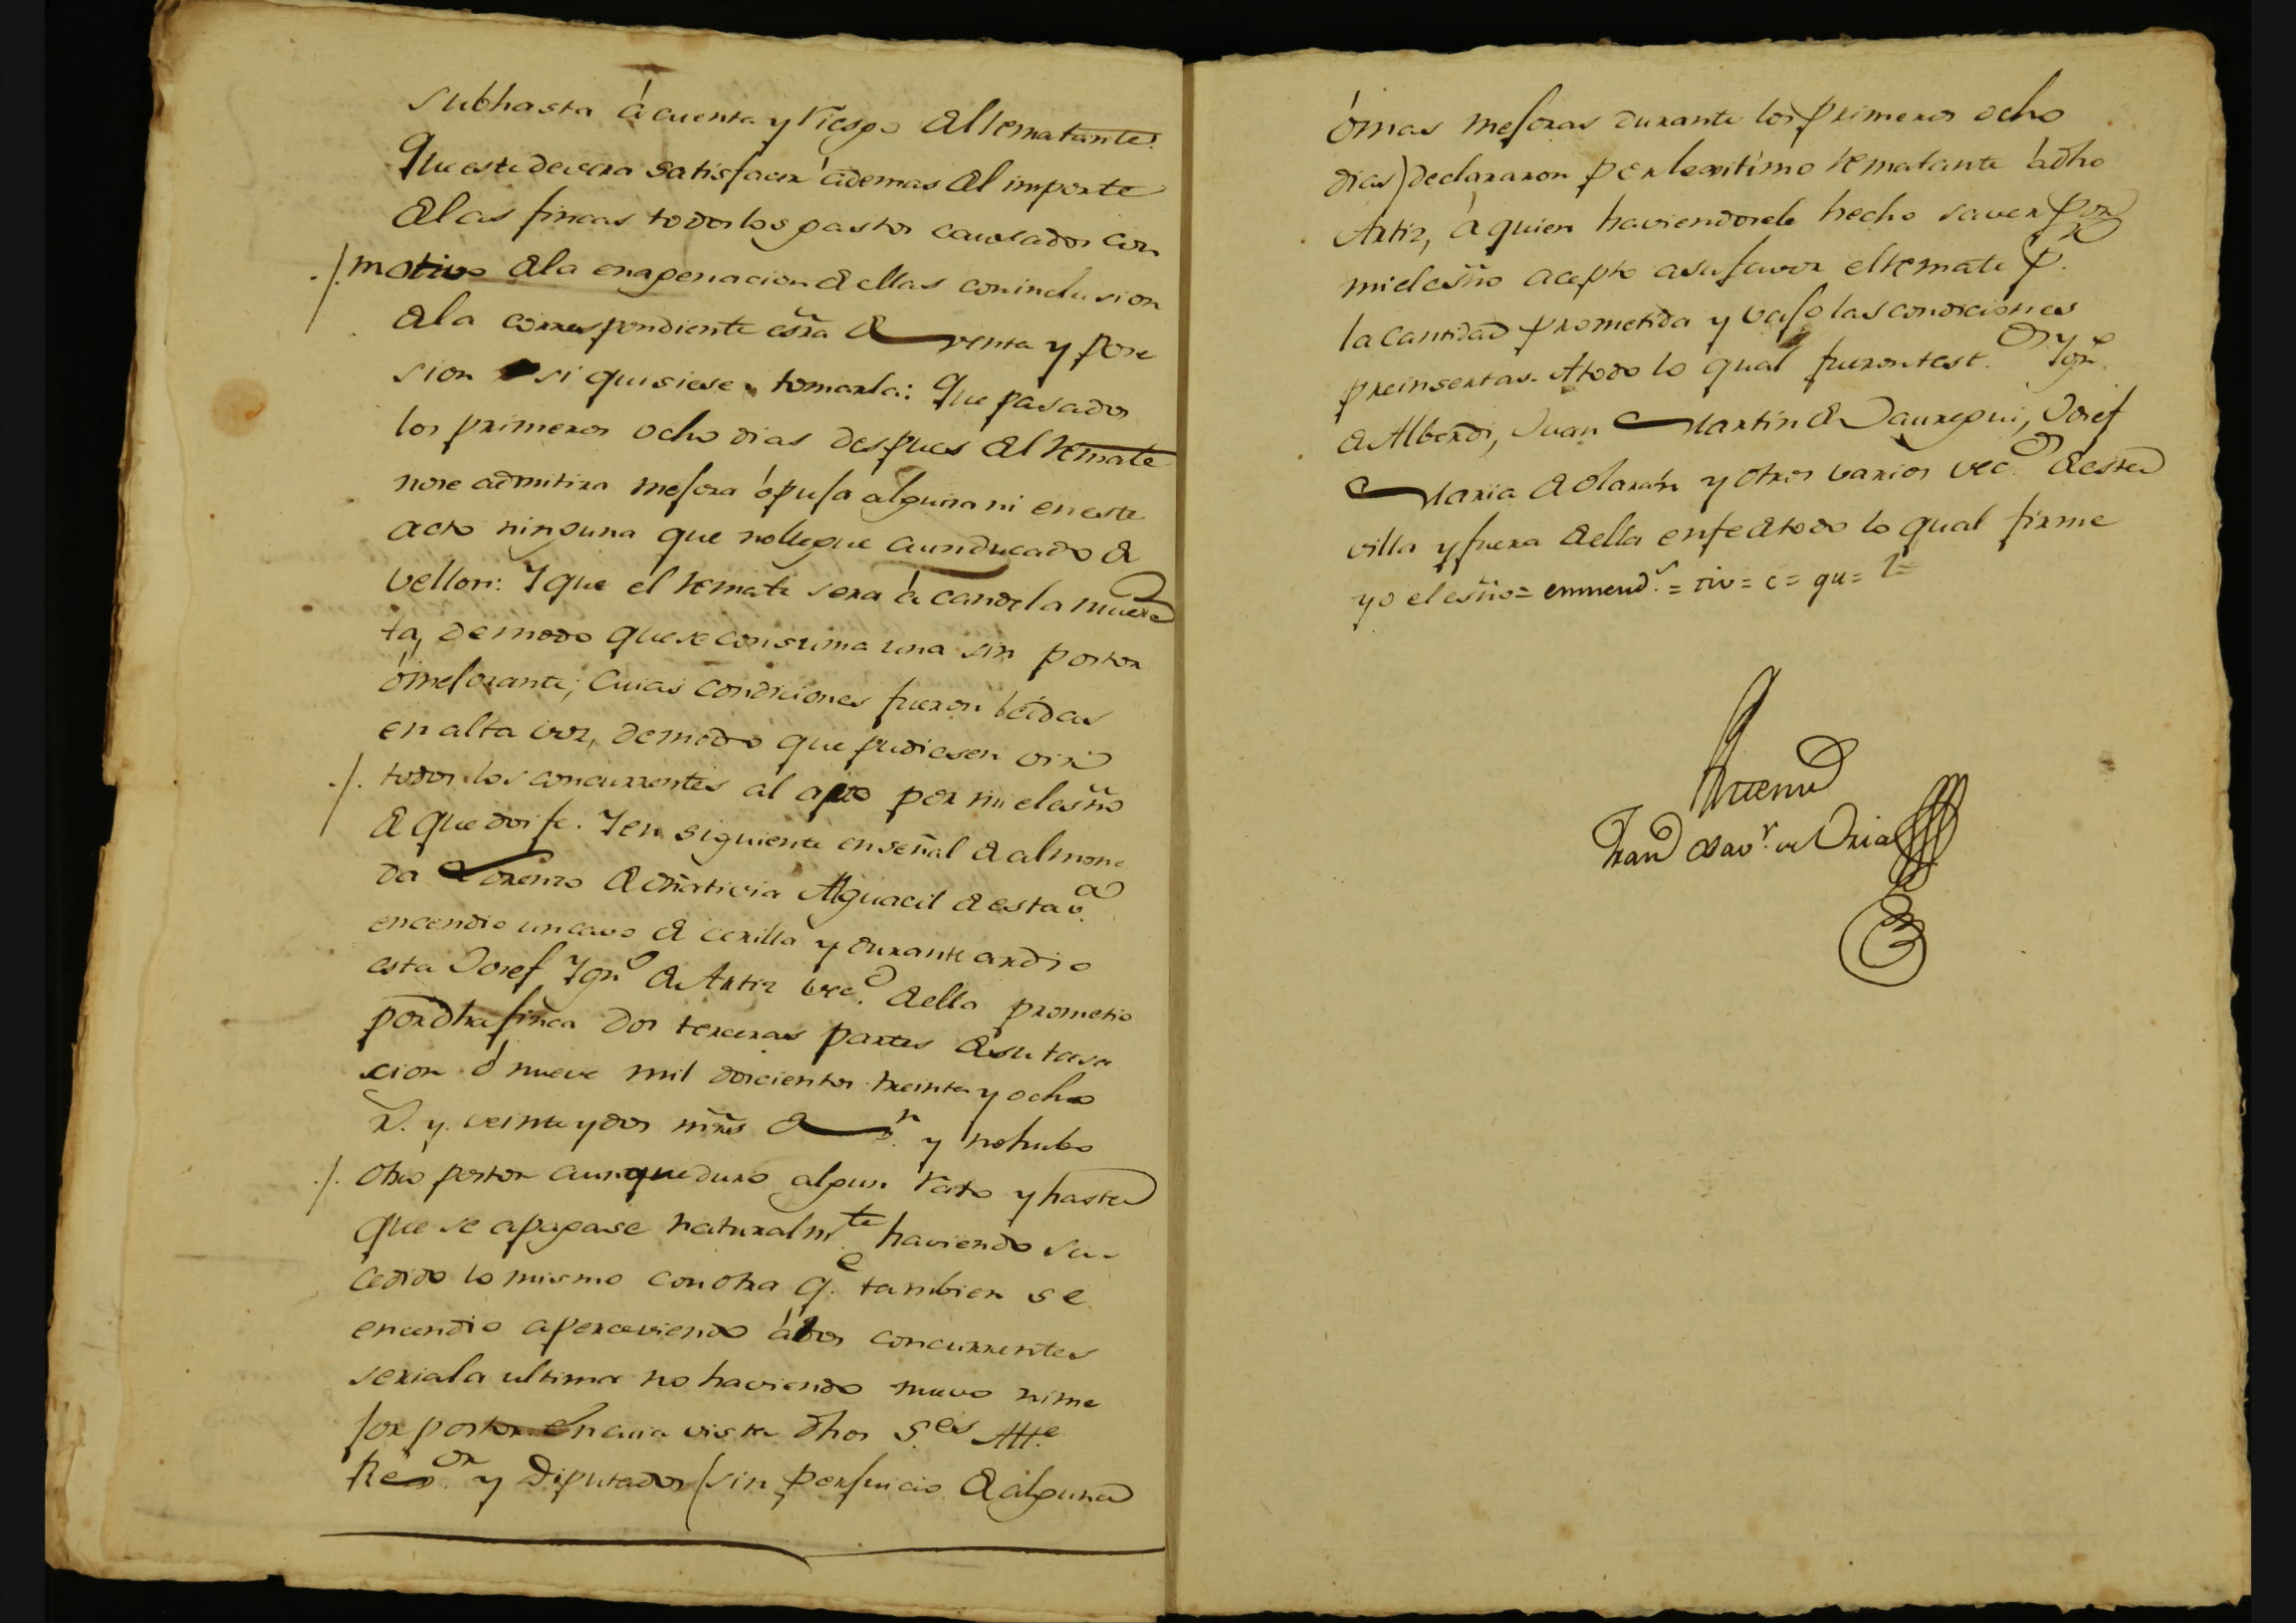 subhasta á cuenta y riesgo del rematante:
Que este devera satisfacer ádemas del importe
de las fincas todos los gastos causados con
./. motivo de la enagenacion de ellas con inclusion
de la correspondiente esrã de venta y pose
sion si quisiese tomarla: Que pasados
los primeros ocho dias despues del remate
no se admitira mejora ó puja alguna ni en este
acto ninguna que no llegue a un ducado de
vellon: Y que el remate sera á candela muer
ta, de modo que se consuma una sin postor
ó mejorante; cuias condiciones fueron leídas
en alta voz, de modo que pudiesen oir
./. todos los concurrentes al acto por mi el esño
de que doi fe. Y en siguiente en señal de almone
da Lorenzo de Oñativia Alguacil de esta v.ª
encendio un cavo de cerilla y durante ardio
esta Josef Ygn.º de Artiz vec.º de ella prometio
por dha finca dos terceras partes de su tasa
cion ó nueve mil doscientos treinta y ocho
r.s y veinte y dos mr̃s de v.n y no hubo
./. otro postor aunque duro algun rato y hasta
que se apagase naturalm.te haviendo su-
cedido lo mismo con otra q.e tambien se
encendio aperciviendo á los concurrentes
seria la ultima no haviendo nuevo ni me
jor postor. En cuia vista dhos S.es Alt.e
Rex.or y Diputados (sin perjuicio de alguna
ó mas mejoras durante los primeros ocho
dias) declararon por lexitimo rematante á dho
Artiz, á quien haviendosele hecho saver por
mi el esño acepto a su favor el remate p.r
la cantidad prometida y vajo las condiciones
preinsertas. A todo lo qual fueron test.os Ygn.º
de Alberdi, Juan Martin de Jauregui, Josef
Maria de Olarán y otros varios vec.os de esta
villa y fuera de ella en fe de todo lo qual firme
yo el esño = enmend.s = tiv = c = qu = l =
Ante mi
Fran.co Xav.r de Oria